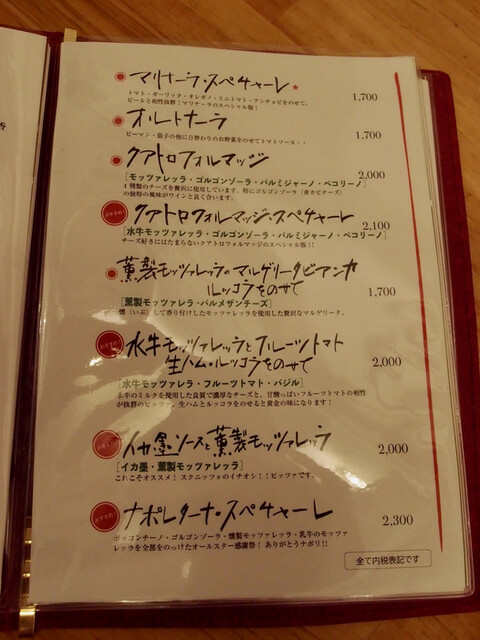 香
マリナーラ・スペチャーレ★
トマト・ガーリック・オレガノ・ミニトマト・アンチョビをのせて。
ビールと相性抜群！マリナーラのスペシャル版！
1,700
オルトナーラ
ピーマン・茄子の他に日替わりのお野菜をのせてトマトソース・・
1,700
クアトロフォルマッジ
2,000
[モッツァレッラ・ゴルゴンゾーラ・パルミジャーノ・ペコリーノ]
4種類のチーズを贅沢に使用しています。特にゴルゴンゾーラ（青カビチーズ）
の独特の風味がワインと良く合います。
おすすめ！
クアトロフォルマッジ・スペチャーレ
2,100
[水牛モッツァレラ・ゴルゴンゾーラ・パルミジャーノ・ペコリーノ]
チーズ好きにはたまらないクアトロフォルマッジのスペシャル版！！
薫製モッツァレッラのマルゲリータビアンカ
ルッコラをのせて
1,700
[薫製モッツァレラ・パルメザンチーズ]
燻（いぶ）して香り付けしたモッツァレラを使用した贅沢なマルゲリータ。
おすすめ！
水牛モッツァレッラとフルーツトマト
生ハム・ルッコラをのせて
2,000
[水牛モッツァレラ・フルーツトマト・バジル]
水牛のミルクを使用した良質で濃厚なチーズと、甘酸っぱいフルーツトマトの相性
が抜群のピッツァ。生ハムとルッコラをのせると黄金の味になります！
イカ墨ソースと薫製モッツァレッラ
2,000
[イカ墨・薫製モッツァレッラ]
これこそオススメ！スクニッツォのイチオシ！！ピッツァです。
おすすめ！
ナポレターナ・スペチャーレ
2,300
ボッコンチーノ・ゴルゴンゾーラ・燻製モッツァレラ・乳牛のモッツァ
レッラを全部をのっけたオールスター感謝祭！ありがとうナポリ!!
全て内税表記です